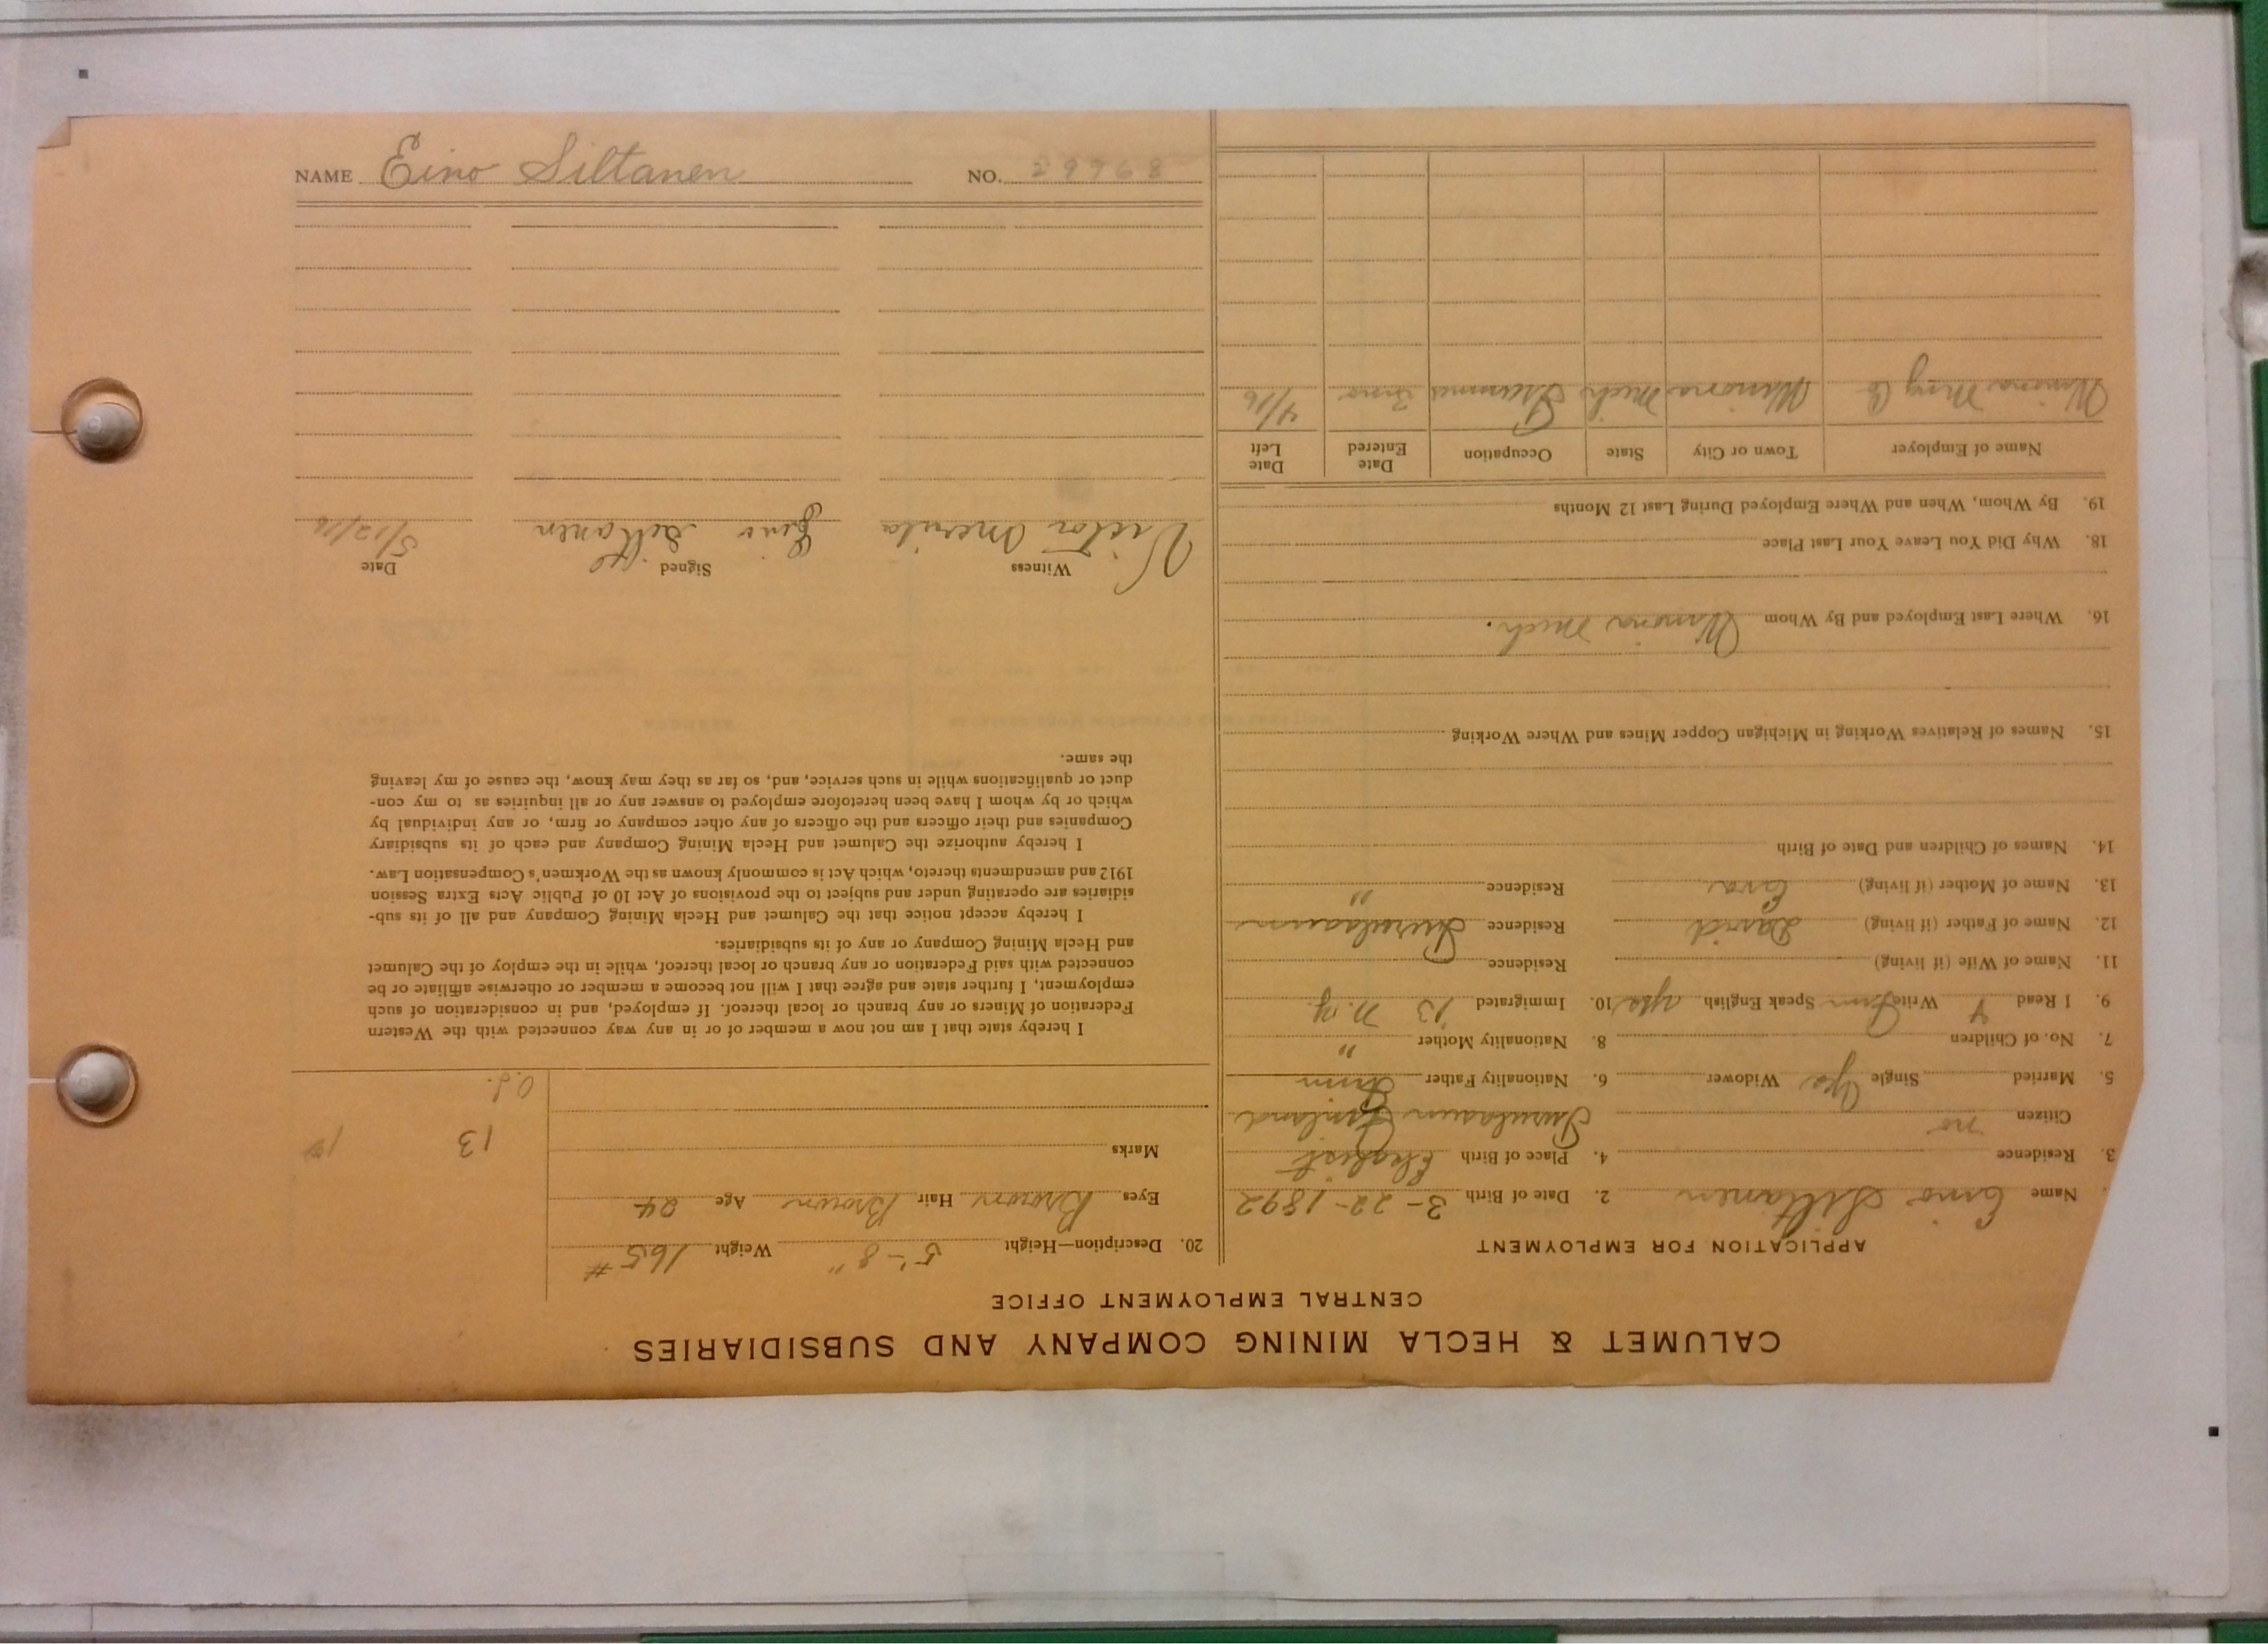 NAME Eino Siltanen NO. 29968
CALUMET & HECLA MINING COMPANY AND SUBSIDIARIES
CENTRAL EMPLOYMENT OFFICE
APPLICATION FOR EMPLOYMENT
Name Eino Siltanen 2. Date of Birth 3-22-1892
3. Residence 4. Place of Birth
Citizen no Finland
5. Married Single yes Widower 6. Nationality Father Finn
7. No. of Children 8. Nationality Mother "
9. I Read Y Write Finn Speak English 10. Immigrated '13 N.Y.
11. Name of Wife (if living) Residence
12. Name of Father (if living) David Residence
13. Name of Mother (if living) Eva Residence "
14. Names of Children and Date of Birth
15. Names of Relatives Working in Michigan Copper Mines and Where Working
16. Where Last Employed and By Whom Winona Mich.
18. Why Did You Leave Your Last Place
19. By Whom, When and Where Employed During Last 12 Months
Name of Employer Town or City State Occupation Date Entered Date Left
Winona Mng Co Winona Mich Trammer 3 mo 4/16
20. Description—Height 5'-8" Weight 165 #
Eyes Brown Hair Brown Age 24
Marks
13
O.S.
I hereby state that I am not now a member of or in any way connected with the Western
Federation of Miners or any branch or local thereof. If employed, and in consideration of such
employment, I further state and agree that I will not become a member or otherwise affiliate or be
connected with said Federation or any branch or local thereof, while in the employ of the Calumet
and Hecla Mining Company or any of its subsidiaries.
I hereby accept notice that the Calumet and Hecla Mining Company and all of its sub-
sidiaries are operating under and subject to the provisions of Act 10 of Public Acts Extra Session
1912 and amendments thereto, which Act is commonly known as the Workmen's Compensation Law.
I hereby authorize the Calumet and Hecla Mining Company and each of its subsidiary
Companies and their officers and the officers of any other company or firm, or any individual by
which or by whom I have been heretofore employed to answer any or all inquiries as to my con-
duct or qualifications while in such service, and, so far as they may know, the cause of my leaving
the same.
Witness Signed Date
Victor Eino Siltanen 5/12/16